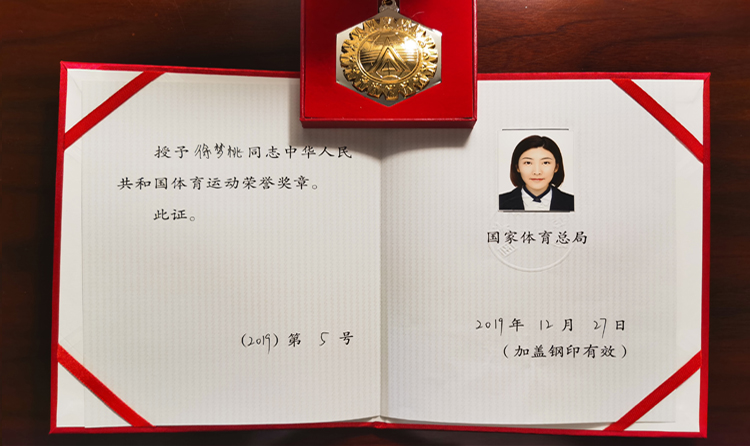 授予徐梦桃同志中华人民
共和国体育运动荣誉奖章。
此证。
(2019)第 5 号
国家体育总局
2019年 12月 27日
(加盖钢印有效)